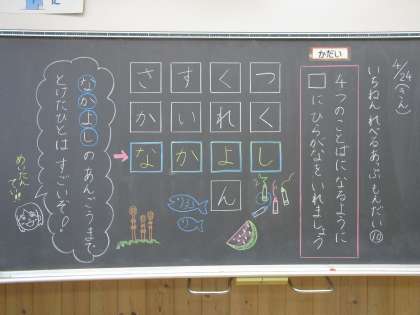 4/24(きん)
いちねん れべるあっぷ もんだい⑩
かだい
4つのことばになるように
□にひらがなをいれましょう
つくし
くれよん
すいか
さかな
なかよしのあんごうまで
とけたひとは すごいぞ!
めいたん
てい!!